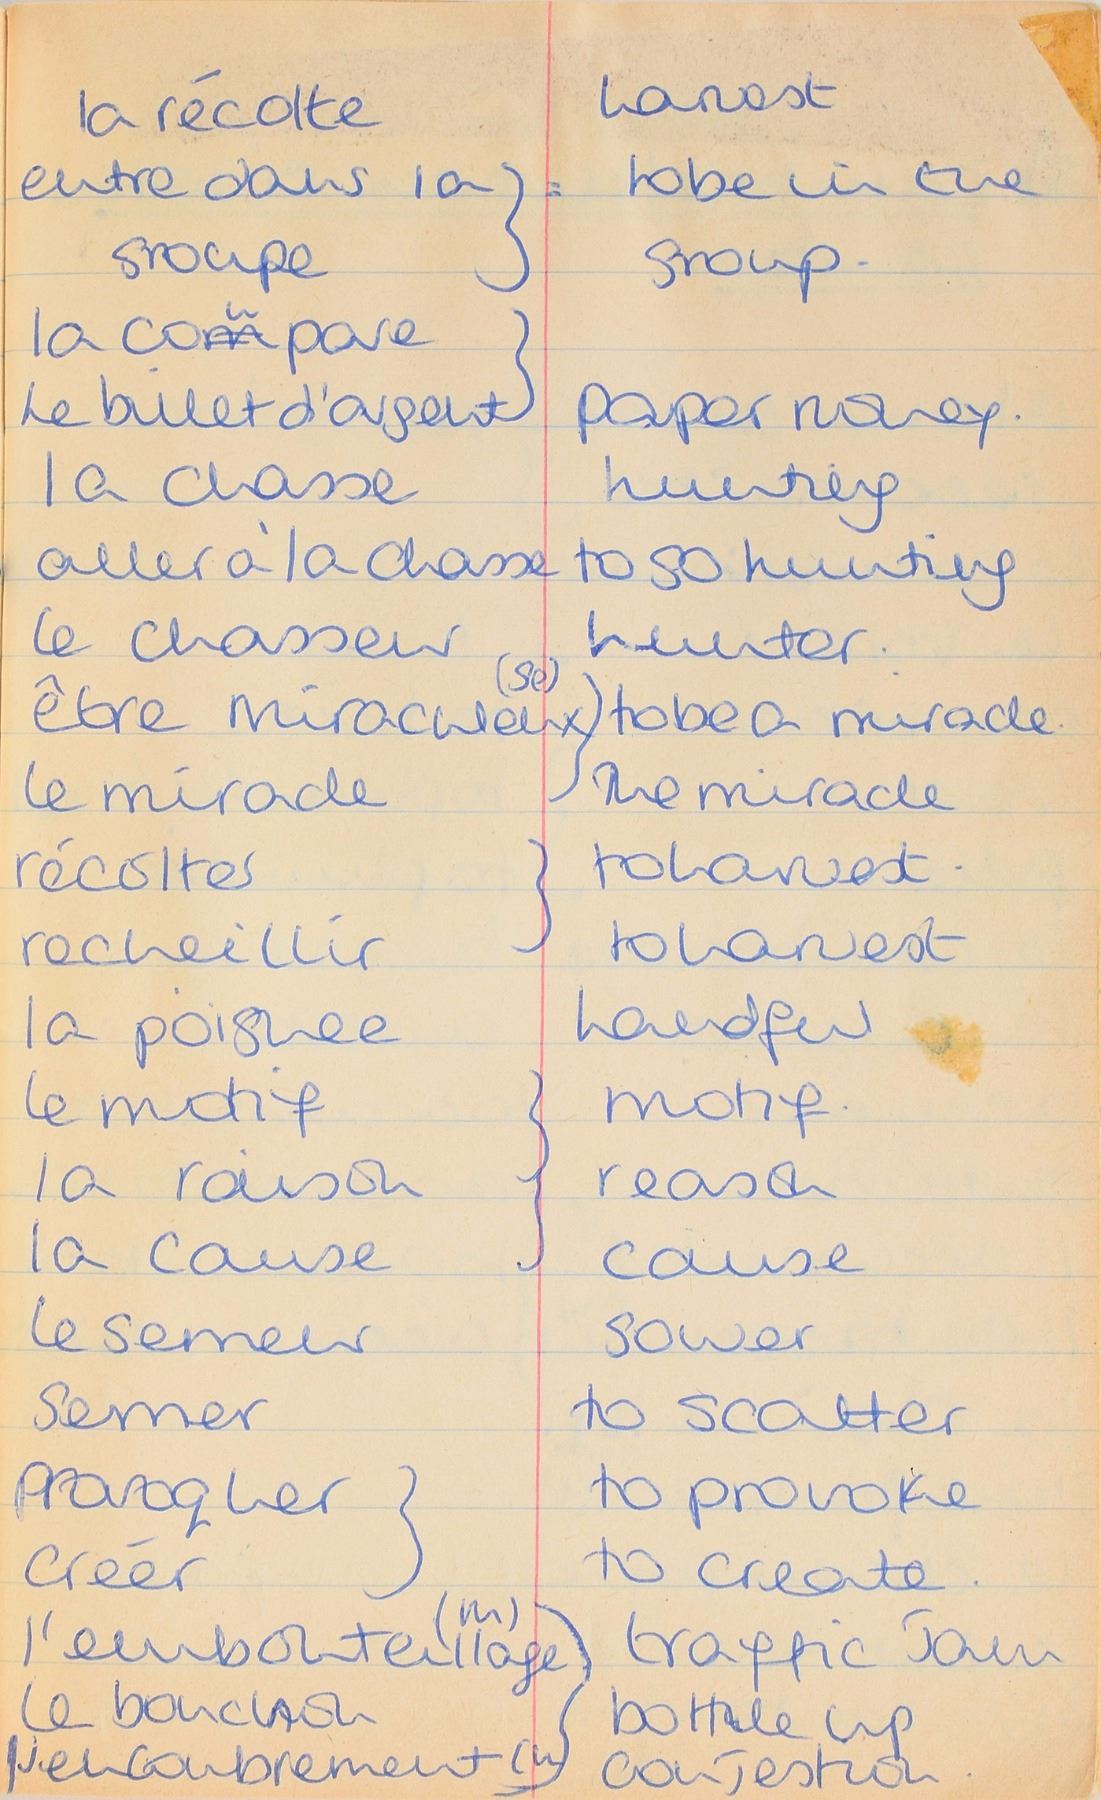 la récolte harvest
entre dans la } = to be in the
groupe group.
la coupare }
le billet d'argent paper money.
la chasse hunting
aller à la chasse to go hunting
le chasseur hunter.
être miraculeux (se) } to be a miracle.
le miracle the miracle
récolter } to harvest.
recheillir to harvest
la poignee handful
le motif } motif.
la raison reason
la cause cause
le semeur sower
semer to scatter
provoquer } to provoke
creér to create.
l'embouteillage (m) } traffic Jam
le bouchon bottle up
l'encoubrement (m) conjestion.